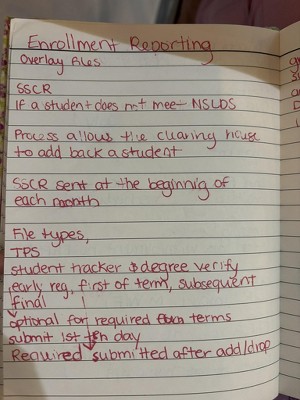 Enrollment Reporting
Overlay files
SSCR
If a student does not meet NSLDS
Process allows the clearing house
to add back a student
SSCR sent at the beginnig of
each month
File types,
TPS
student tracker & degree verify
early reg, first of term, subsequent
final
optional for required terms
submit 1st day
Required submitted after add/drop